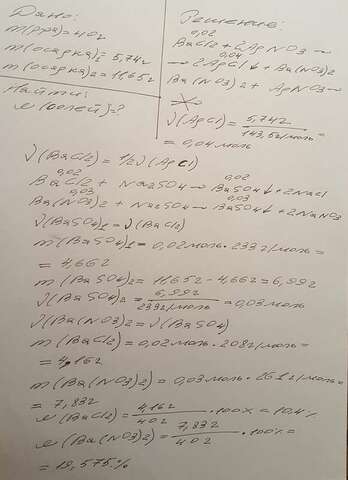 Дано:
m(р-ра)=40г
m(осадка)₁=5,74г
m(осадка)₂=11,65г
Найти:
w(солей)=?
Решение:
0,02 0,04
BaCl2 + 2AgNO3 →
→ 2AgCl↓ + Ba(NO3)2
Ba(NO3)2 + AgNO3 →
ν(AgCl) = 5,74г / 143,5г/моль =
= 0,04моль
ν(BaCl2) = 1/2ν(AgCl)
0,02 0,02
BaCl2 + Na2SO4 → BaSO4↓ + 2NaCl
0,03 0,03
Ba(NO3)2 + Na2SO4 → BaSO4↓ + 2NaNO3
ν(BaSO4)1 = ν(BaCl2)
m(BaSO4)1 = 0,02моль · 233г/моль =
= 4,66г
m(BaSO4)2 = 11,65г - 4,66г = 6,99г
ν(BaSO4)2 = 6,99г / 233г/моль = 0,03моль
ν(Ba(NO3)2) = ν(BaSO4)
m(BaCl2) = 0,02моль · 208г/моль =
= 4,16г
m(Ba(NO3)2) = 0,03моль · 261г/моль =
= 7,83г
w(BaCl2) = 4,16г / 40г · 100% = 10,4%
w(Ba(NO3)2) = 7,83г / 40г · 100% =
= 19,575%